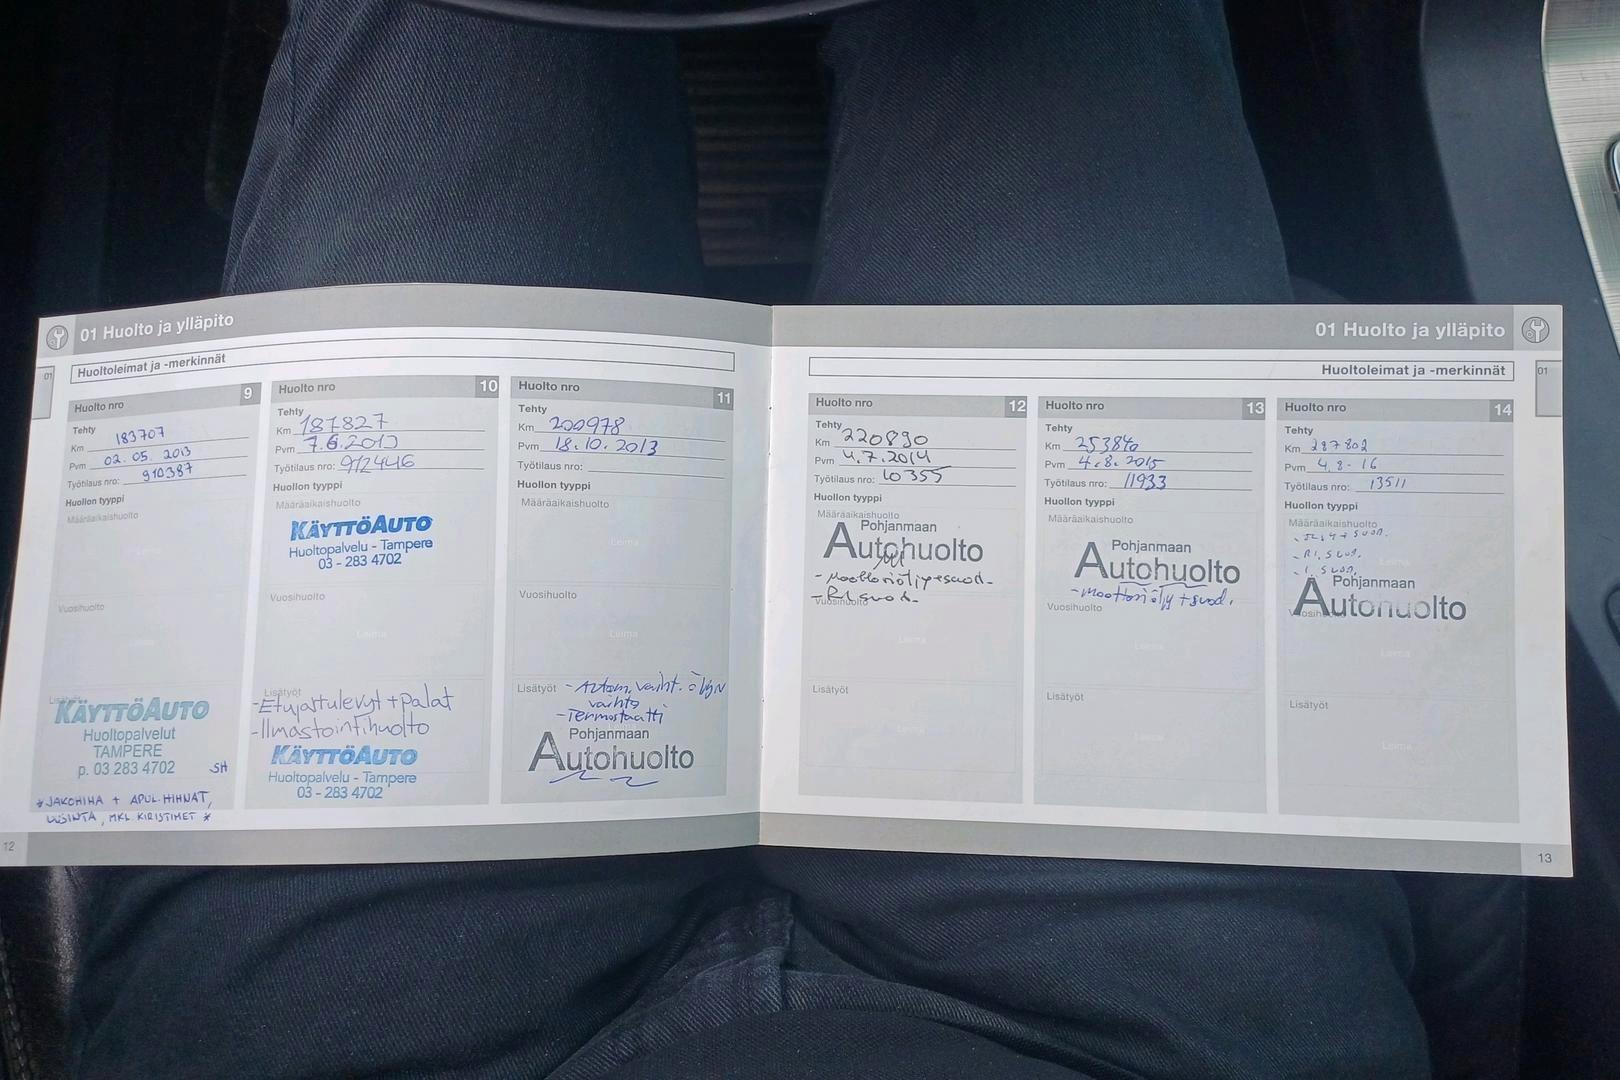 01 Huolto ja ylläpito
Huoltoleimat ja -merkinnät
01
Huolto nro 9
Tehty
Km 183707
Pvm 02.05.2013
Työtilaus nro: 910387
Huollon tyyppi
Määräaikaishuolto
Leima
Vuosihuolto
Lisätyöt
KÄYTTÖAUTO
Huoltopalvelut
TAMPERE
p. 03 283 4702 SH
* JAKOHIHNA + APUL.HIHNAT,
UUSINTA, MKL KIRISTIMET *
12
Huolto nro 10
Tehty
Km 187827
Pvm 7.6.2013
Työtilaus nro: 912446
Huollon tyyppi
Määräaikaishuolto
KÄYTTÖAUTO
Huoltopalvelu - Tampere
03 - 283 4702
Vuosihuolto
Leima
Lisätyöt
- Etujarrulevyt + palat
- Ilmastointihuolto
KÄYTTÖAUTO
Huoltopalvelu - Tampere
03 - 283 4702
Huolto nro 11
Tehty
Km 200978
Pvm 18.10.2013
Työtilaus nro:
Huollon tyyppi
Määräaikaishuolto
Leima
Vuosihuolto
Leima
Lisätyöt - Autom.vaiht. öljyn
vaihto
- Termostaatti
Pohjanmaan
Autohuolto
01 Huolto ja ylläpito
Huoltoleimat ja -merkinnät
01
Huolto nro 12
Tehty
Km 220890
Pvm 4.7.2014
Työtilaus nro: 10355
Huollon tyyppi
Määräaikaishuolto
Pohjanmaan
Autohuolto
- Moottoriöljy+suod.
- RI suod.
Vuosihuolto
Leima
Lisätyöt
Leima
Huolto nro 13
Tehty
Km 253840
Pvm 4.8.2015
Työtilaus nro: 11933
Huollon tyyppi
Määräaikaishuolto
Pohjanmaan
Autohuolto
- Moottoriöljy + suod.
Vuosihuolto
Leima
Lisätyöt
Leima
Huolto nro 14
Tehty
Km 287802
Pvm 4.8-16
Työtilaus nro: 13511
Huollon tyyppi
Määräaikaishuolto
- RI, suod.
- I, suod.
Pohjanmaan
Autohuolto
Vuosihuolto
Leima
Lisätyöt
Leima
13